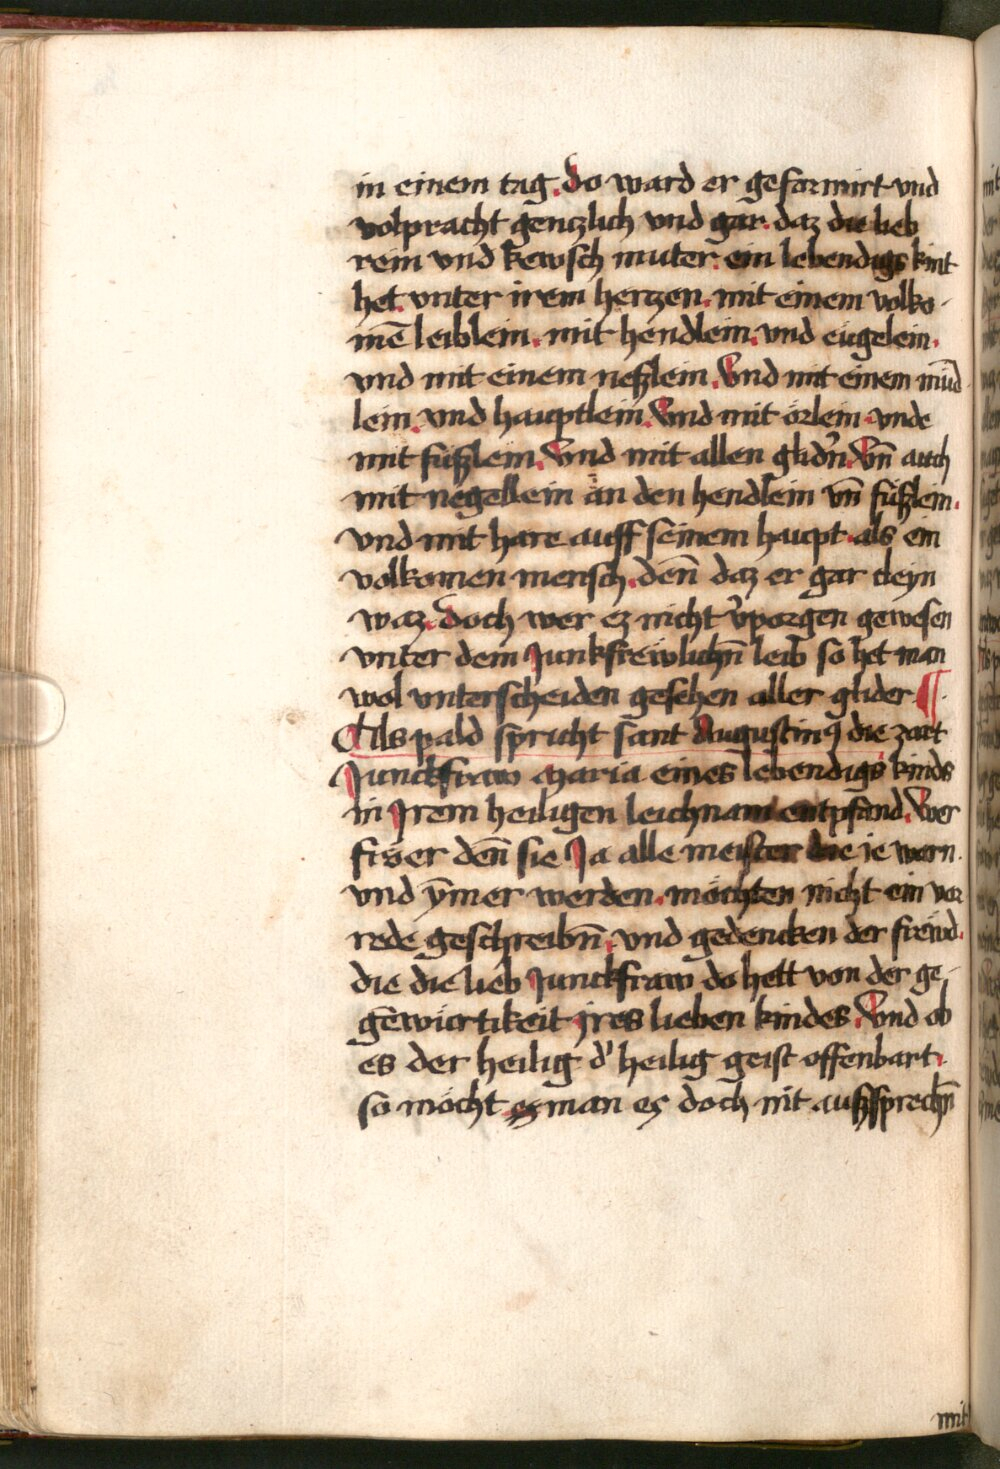 in einem tag. do ward er geformirt vnd
volpracht genczlich vnd gar. daz die lieb
rein vnd kewsch muter. ein lebendigs kint
het. vnter irem herczen. mit einem volko-
mē leiblein. mit hendlein. vnd eügelein.
vnd mit einem neßlein. Vnd mit einem mūd
lein. vnd hauptlein. Vnd mit örlein. vnde
mit füßlein. Vnd mit allen glidn̄. Vn̄ auch
mit negellein an den hendlein vn̄ füßlein.
vnd mit hare auff seinem haupt. als ein
volkomen mensch. den̄ daz er gar cleyn
waz. doch wer ez nicht v̾porgen gewesen
vnter dem Junkfrewlichn̄ leib so het man
wol vnterscheiden gesehen aller glider. ¶
Als pald spricht sant Augustinꝰ die zart
Junckfraw Maria eines lebendigs kinds
in Jrem heiligen leichnam entpfand. wer
den̄ sie Ja alle meister die ie warn.
vnd ȳmer werden. möchten nicht ein vor
rede geschreibn̄. vnd gedencken der frewd.
die die lieb Junckfraw do hett von der ge-
genwürtikeit Jres lieben kindes. Vnd ob
es der heilig d' heilig geist offenbart.
so möcht es man es doch nit außsprechn̄
mit